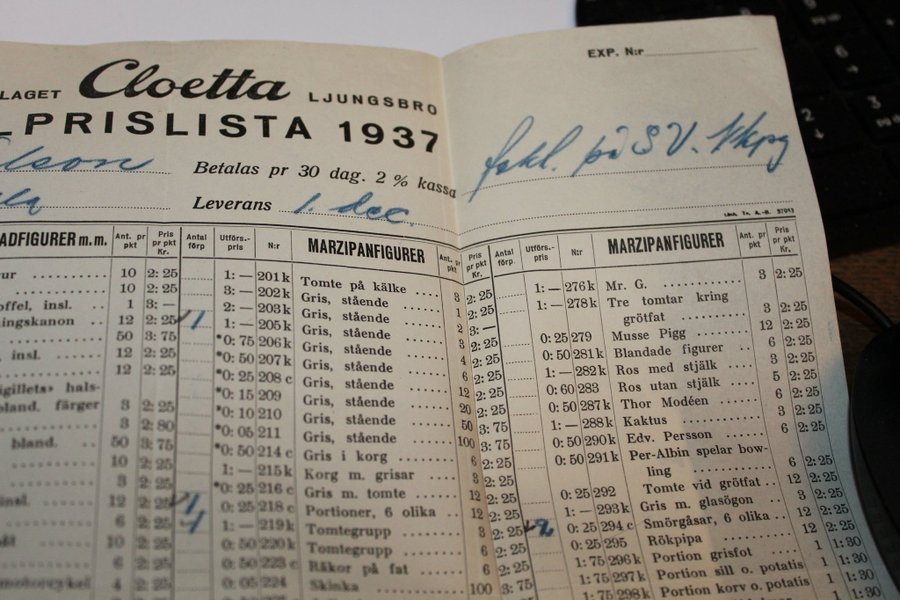 EXP. N:r
LAGET Cloetta LJUNGSBRO
PRISLISTA 1937
Betalas pr 30 dag. 2 % kassa
Leverans 1. dec.
fakt. på S V.
ADFIGURER m. m. Ant. pr pkt Pris pr pkt Kr.
ur 10 2: 25
10 2: 25
offel, insl. 1 3: —
ningskanon 12 2: 25
50 3: 75
insl. 12 2: 25
12 2: 25
igillets» hals-
bland. färger 3 2: 25
3 2: 80
bland. 50 3: 75
10 2: 25
3 2: 25
insl. 12 2: 25
6 2: 25
10 2: 25
6 2: 25
motorcykel 4 2: 25
Antal förp Utförs.-pris N:r MARZIPANFIGURER Ant. pr pkt Pris pr pkt Kr.
1: — 201 k Tomte på kälke 3 2: 25
3: — 202 k Gris, stående 1 2: 25
2: — 203 k Gris, stående 2 3: —
1 1: — 205 k Gris, stående 3 2: 25
*0: 75 206 k Gris, stående 4 2: 25
*0: 50 207 k Gris, stående 6 2: 25
*0: 25 208 c Gris, stående 12 2: 25
*0: 15 209 Gris, stående 20 2: 25
*0: 10 210 Gris, stående 50 3: 75
*0: 05 211 Gris, stående 100 3: 75
*0: 50 214 c Gris i korg 6 2: 25
1: — 215 k Korg m. grisar 3 2: 25
*0: 25 216 c Gris m. tomte 12 2: 25
1 0: 25 218 c Portioner, 6 olika 12 2: 25
1 1: — 219 k Tomtegrupp 3 2: 25
0: 50 220 k Tomtegrupp 6 2: 25
0: 50 223 c Räkor på fat 6 2: 25
0: 05 224 Skinka 100 3: 75
Antal förp. Utförs.-pris N:r MARZIPANFIGURER Ant. pr pkt Pris pr pkt Kr.
1: — 276 k Mr. G. 3 2: 25
1: — 278 k Tre tomtar kring
grötfat 3 2: 25
0: 25 279 Musse Pigg 12 2: 25
0: 50 281 k Blandade figurer 6 2: 25
1: — 282 k Ros med stjälk 3 2: 25
0: 60 283 Ros utan stjälk 5 2: 25
0: 50 287 k Thor Modéen 6 2: 25
1: — 288 k Kaktus 3 2: 25
0: 50 290 k Edv. Persson 6 2: 25
0: 50 291 k Per-Albin spelar bow-
ling 6 2: 25
0: 25 292 Tomte vid grötfat 12 2: 25
1: — 293 k Gris m. glasögon 3 2: 25
0: 25 294 c Smörgåsar, 6 olika 12 2: 25
0: 25 295 Rökpipa 12 2: 25
1: 75 296 k Portion grisfot 1 1: 30
1: 75 297 k Portion sill o. potatis 1 1: 30
1: 75 298 k Portion korv o. potatis 1 1: 30